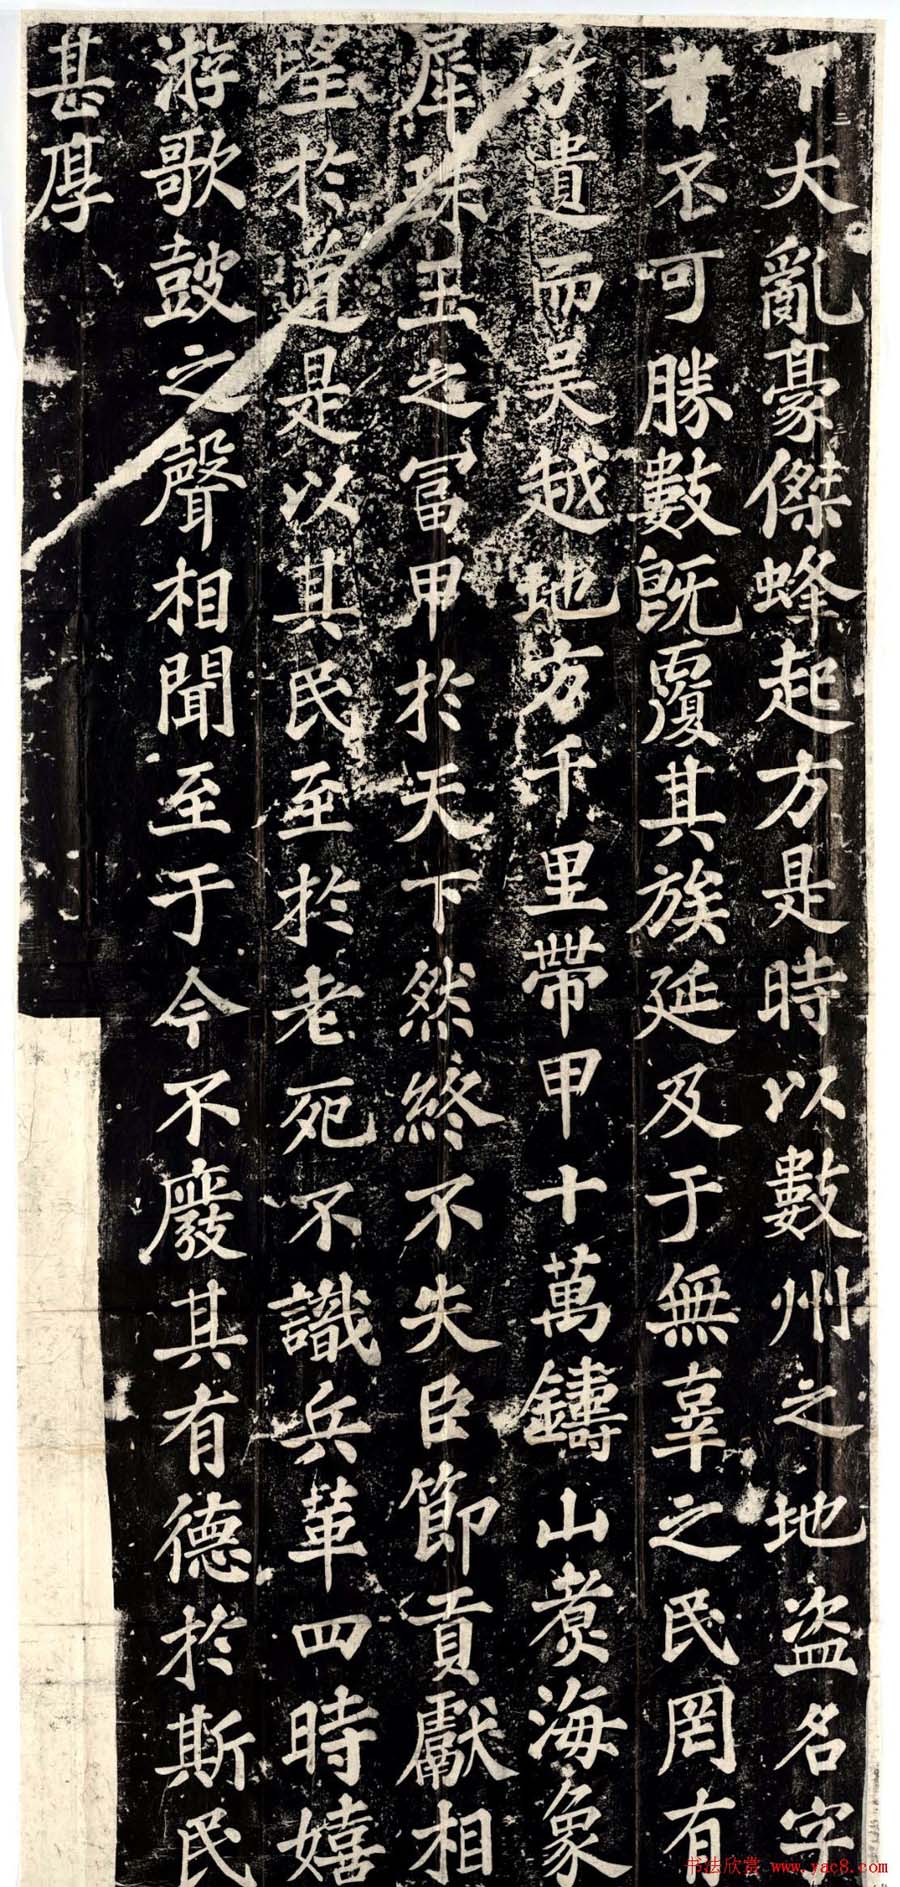 下大亂豪傑蜂起方是時以數州之地盜名字
者不可勝數既覆其族延及于無辜之民罔有
孑遺而吳越地方千里帶甲十萬鑄山煑海象
犀珠玉之富甲於天下然終不失臣節貢獻相
望於道是以其民至於老死不識兵革四時嬉
游歌鼓之聲相聞至于今不廢其有德於斯民
甚厚
二
书法欣赏 www.yac8.com